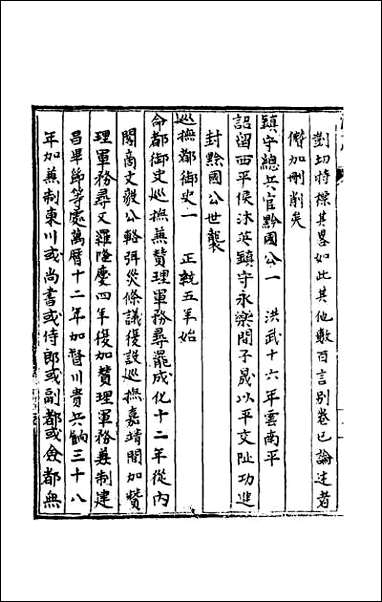 對切特標其畧如此其他數百言別卷已論述者
僭加刪削矣
鎮守總兵官黔國公一 洪武十六年雲南平
詔留西平侯沐英鎮守永樂間子晟以平交阯功進
封黔國公世襲
巡撫都御史一 正統五年始
命都御史巡撫兼贊理軍務尋罷成化十二年從內
閣商文毅公輅弭災條議復設巡撫嘉靖間加贊
理軍務尋又罷隆慶四年復加贊理軍務兼制建
昌畢節等處萬曆十二年加督川貴兵餉三十八
年加兼制東川或尚書或侍郎或副都或僉都無